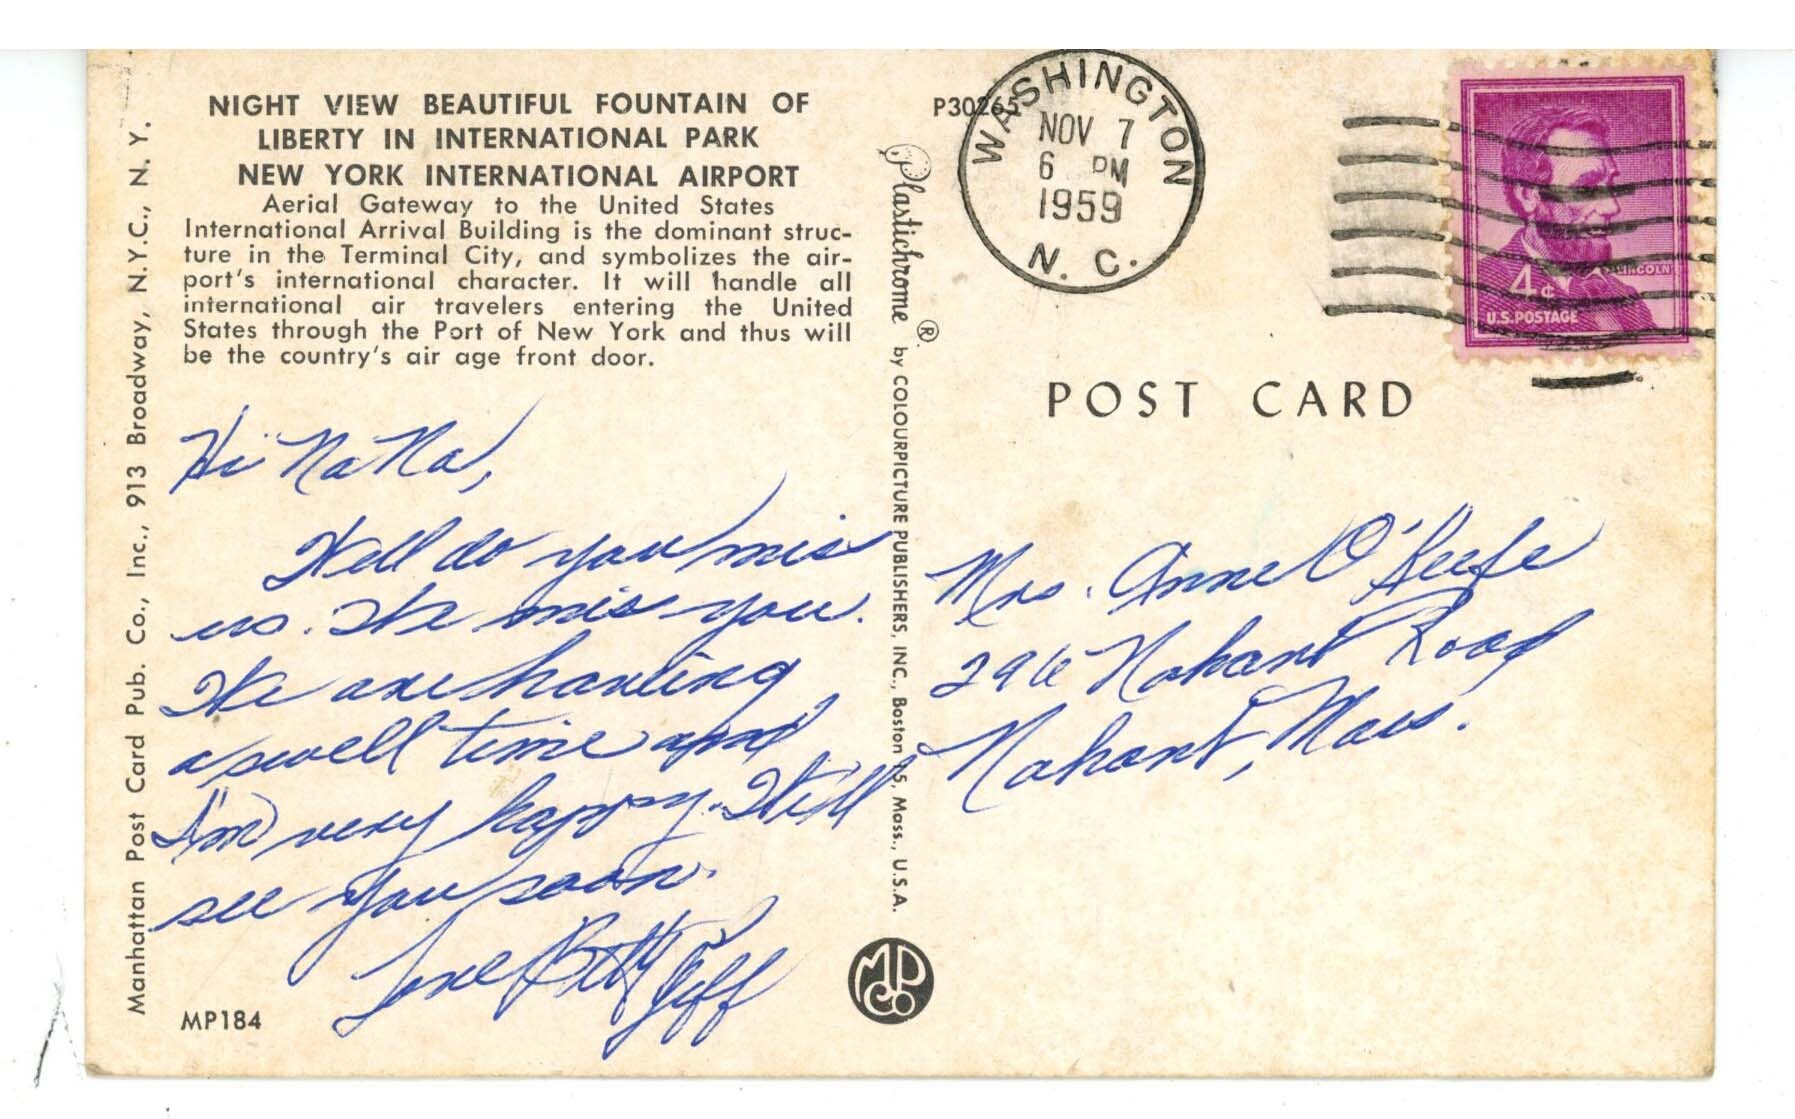 NIGHT VIEW BEAUTIFUL FOUNTAIN OF
LIBERTY IN INTERNATIONAL PARK
NEW YORK INTERNATIONAL AIRPORT
Aerial Gateway to the United States
International Arrival Building is the dominant struc-
ture in the Terminal City, and symbolizes the air-
port's international character. It will handle all
international air travelers entering the United
States through the Port of New York and thus will
be the country's air age front door.
Hi NaNa,
Well do you mis
us. We mis you.
We are having
a swell time and
I'm very happy. Will
see you soon.
Love Betty
Jeff
MP184
Manhattan Post Card Pub. Co., Inc., 913 Broadway, N.Y.C., N. Y.
P30265
Plastichrome ® by COLOURPICTURE PUBLISHERS, INC., Boston 15, Mass., U.S.A.
MP Co
WASHINGTON
NOV 7
6 PM
1959
N. C.
LINCOLN
4¢
U.S. POSTAGE
POST CARD
Mrs. Anne O'Keefe
296 Nahant Road
Nahant, Mass.